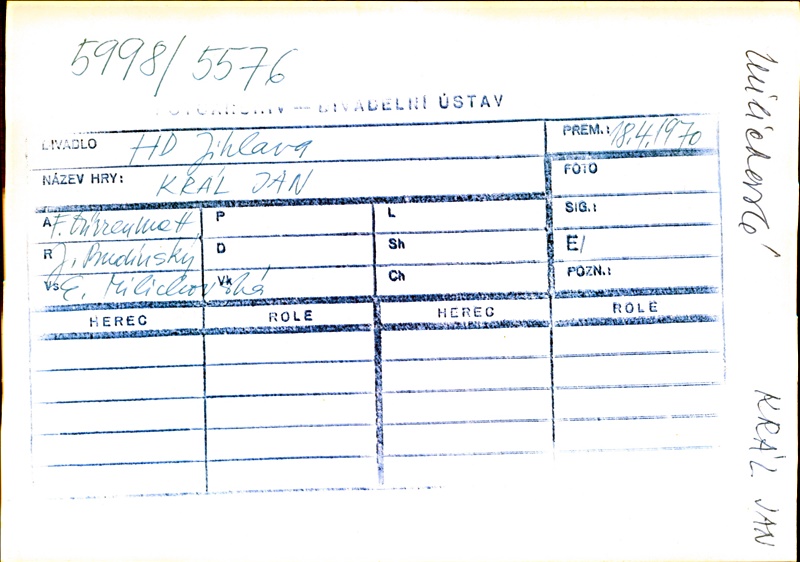 5998/5576
FOTOARCHIV — DIVADELNÍ ÚSTAV
DIVADLO HD Jihlava
PREM.: 18.4.1970
NÁZEV HRY: KRÁL JAN
FOTO
A F. Dürrenmatt P L SIG.:
R J. Budínský D Sh E/
Vs E. Milichovská Vk Ch POZN.:
HEREC ROLE HEREC ROLE
KRÁL JAN